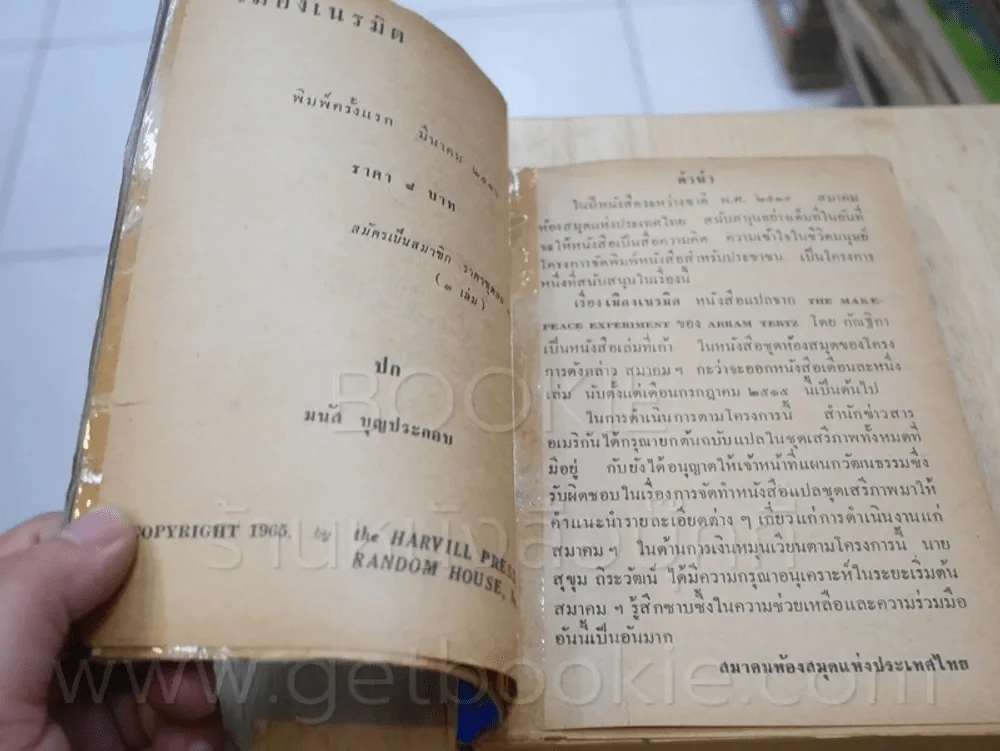 เมืองเนรมิต
พิมพ์ครั้งแรก มีนาคม ๒๕๑๖
ราคา ๘ บาท
สมัครเป็นสมาชิก ราคาชุดละ
(๓ เล่ม)
ปก
มนัส บุญประกอบ
COPYRIGHT 1965, by the HARVILL PRESS
RANDOM HOUSE,
คำนำ
ในปีหนังสือระหว่างชาติ พ.ศ. ๒๕๑๕ สมาคม
ห้องสมุดแห่งประเทศไทย สนับสนุนอย่างเต็มที่ในอันที่
จะให้หนังสือเป็นสื่อความคิด ความเข้าใจในชีวิตมนุษย์
โครงการจัดพิมพ์หนังสือสำหรับประชาชน เป็นโครงการ
หนึ่งที่สนับสนุนในเรื่องนี้
เรื่องเมืองเนรมิต หนังสือแปลจาก THE MAKE-
PEACE EXPERIMENT ของ ABRAM TERTZ โดย กัณฐิกา
เป็นหนังสือเล่มที่เก้า ในหนังสือชุดห้องสมุดของโครง
การดังกล่าว สมาคมฯ กะว่าจะออกหนังสือเดือนละหนึ่ง
เล่ม นับตั้งแต่เดือนกรกฎาคม ๒๕๑๕ นี้เป็นต้นไป
ในการดำเนินการตามโครงการนี้ สำนักข่าวสาร
อเมริกันได้กรุณายกต้นฉบับแปลในชุดเสรีภาพทั้งหมดที่
มีอยู่ กับยังได้อนุญาตให้เจ้าหน้าที่แผนกวัฒนธรรมซึ่ง
รับผิดชอบในเรื่องการจัดทำหนังสือแปลชุดเสรีภาพมาให้
คำแนะนำรายละเอียดต่าง ๆ เกี่ยวแก่การดำเนินงานแก่
สมาคม ฯ ในด้านการเงินหมุนเวียนตามโครงการนี้ นาย
สุขุม ถิระวัฒน์ ได้มีความกรุณาอนุเคราะห์ในระยะเริ่มต้น
สมาคม ฯ รู้สึกซาบซึ้งในความช่วยเหลือและความร่วมมือ
อันนี้เป็นอันมาก
สมาคมห้องสมุดแห่งประเทศไทย
BOOKIE
ร้านหนังสือบุ๊คกี้
www.getbookie.com